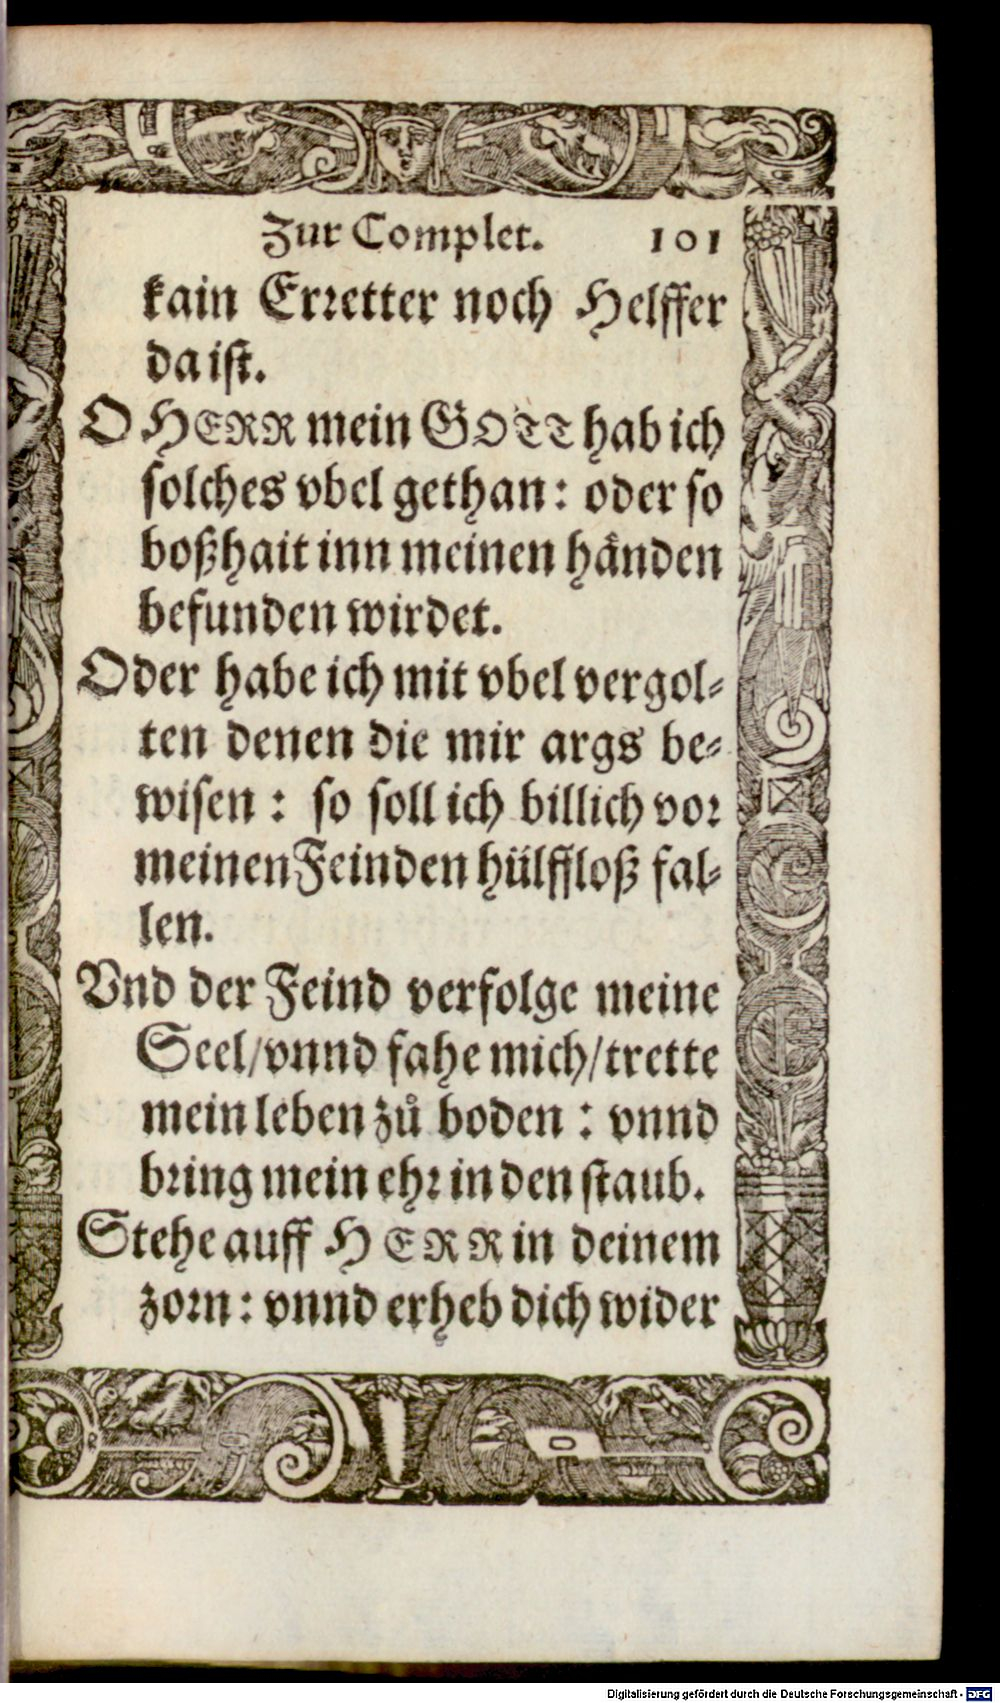 Zur Complet. 101
kain Erꝛetter noch Helffer
da iſt.
O HERR mein GOTT hab ich
ſolches vbel gethan: oder ſo
boßhait inn meinen haͤnden
befunden wirdet.
Oder habe ich mit vbel vergol⸗
ten denen die mir args be⸗
wiſen : ſo ſoll ich billich voꝛ
meinen Feinden hülffloß fal⸗
len.
Vnd der Feind verfolge meine
Seel/vnnd fahe mich/trette
mein leben zů boden : vnnd
bꝛing mein ehꝛ in den ſtaub.
Stehe auff HERR in deinem
zoꝛn: vnnd erheb dich wider
Digitalisierung gefördert durch die Deutsche Forschungsgemeinschaft - DFG